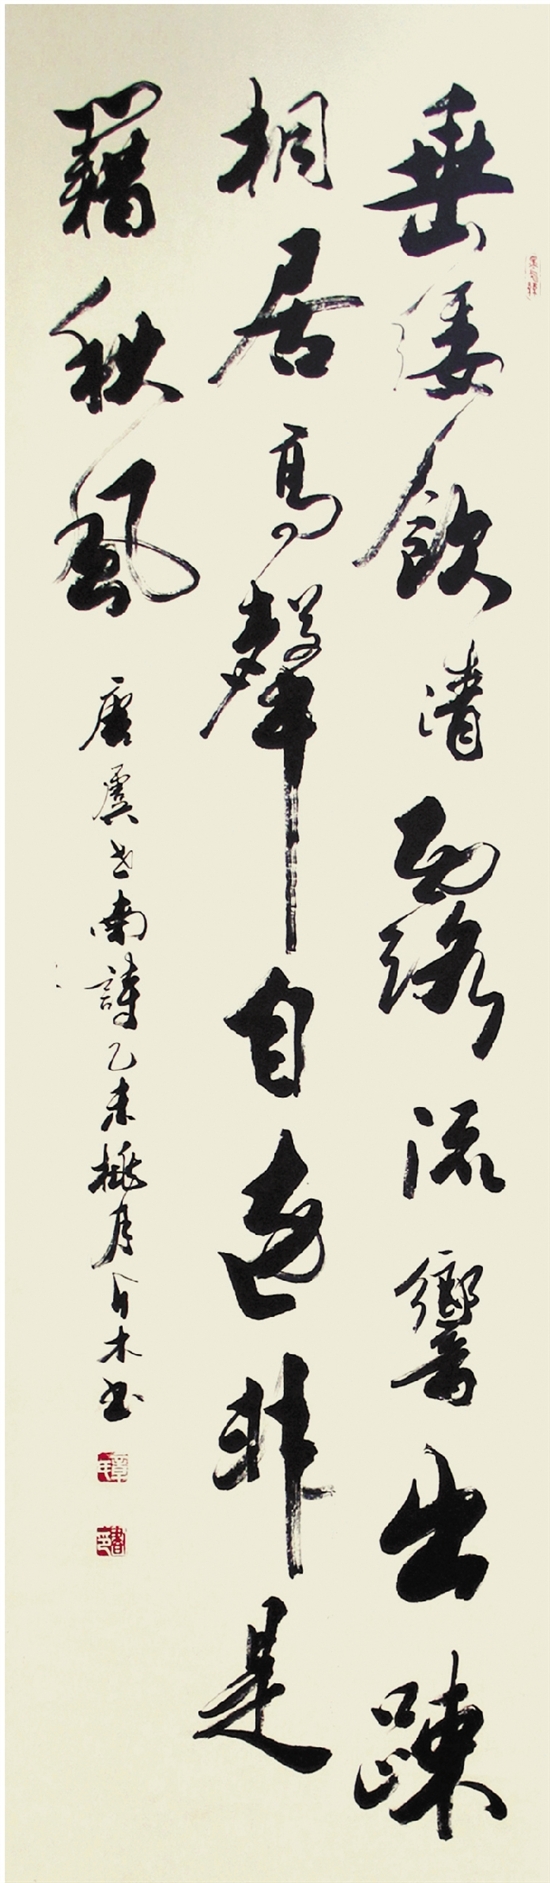 垂緌飲清露流響出踈
桐居高聲自遠非是
藉秋風 唐虞世南詩乙未桃月木書